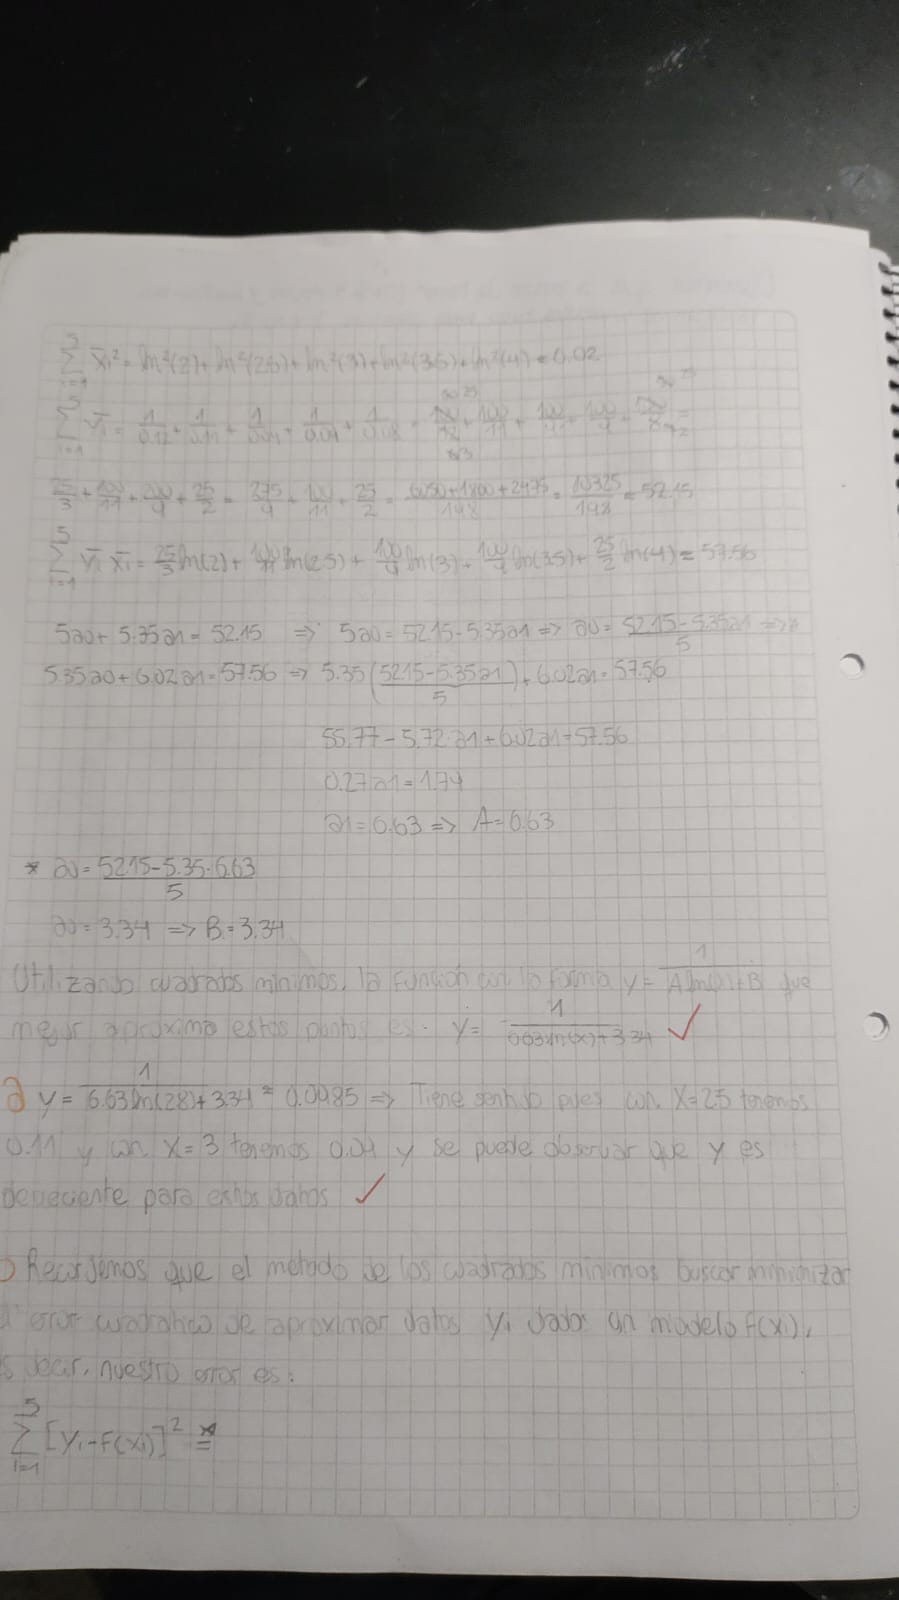 5 ∑ i=1 x̄i² = ln²(2) + ln²(2.5) + ln²(3) + ln²(3.5) + ln²(4) = 6.02
5 ∑ i=1 ȳi = 1/0.12 + 1/0.11 + 1/0.09 + 1/0.09 + 1/0.08 = 100/12 + 100/11 + 100/9 + 100/9 + 100/8 =
25/3 + 100/11 + 200/9 + 25/2 = 275/9 + 100/11 + 25/2 = 6050+1800+2475/198 = 10325/198 = 52.15
5 ∑ i=1 ȳi x̄i = 25/3 ln(2) + 100/11 ln(2.5) + 100/9 ln(3) + 100/9 ln(3.5) + 25/2 ln(4) = 57.56
5a0 + 5.35a1 = 52.15 => 5a0 = 52.15 - 5.35a1 => a0 = 52.15 - 5.35a1/5 =>*
5.35a0 + 6.02a1 = 57.56 => 5.35 (52.15 - 5.35a1/5) + 6.02a1 = 57.56
55.77 - 5.72a1 + 6.02a1 = 57.56
0.27a1 = 1.79
a1 = 6.63 => A = 6.63
* a0 = 52.15 - 5.35 · 6.63/5
a0 = 3.34 => B = 3.34
Utilizando cuadrados mínimos, la función con la forma y = 1/A ln(x) + B que
mejor aproxima estos puntos es: y = 1/6.63 ln(x) + 3.34 ✓
a y = 1/6.63 ln(2.8) + 3.34 = 0.0985 => Tiene sentido pues con X = 2.5 tenemos
0.11 y con X = 3 tenemos 0.09 y se puede observar que y es
decreciente para estos datos ✓
Recordemos que el método de los cuadrados mínimos buscar minimizar
error cuadrático de aproximar datos yi dados un modelo f(xi),
decir, nuestro error es:
5 ∑ i=1 [yi - f(xi)]² =